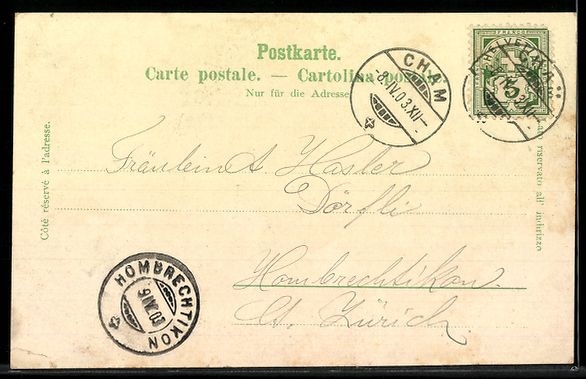 Postkarte.
Carte postale. — Cartolina postale.
Nur für die Adresse
CHAM
8.IV.03.XII—
HELVETIA
FRANCO
5
CHAM
Côté réservé à l'adresse.
Lato riservato all' indirizzo
Fräulein A Hasler
Dörfli
Hombrechtikon.
Ct. Zürich.
HOMBRECHTIKON
9.IV.03